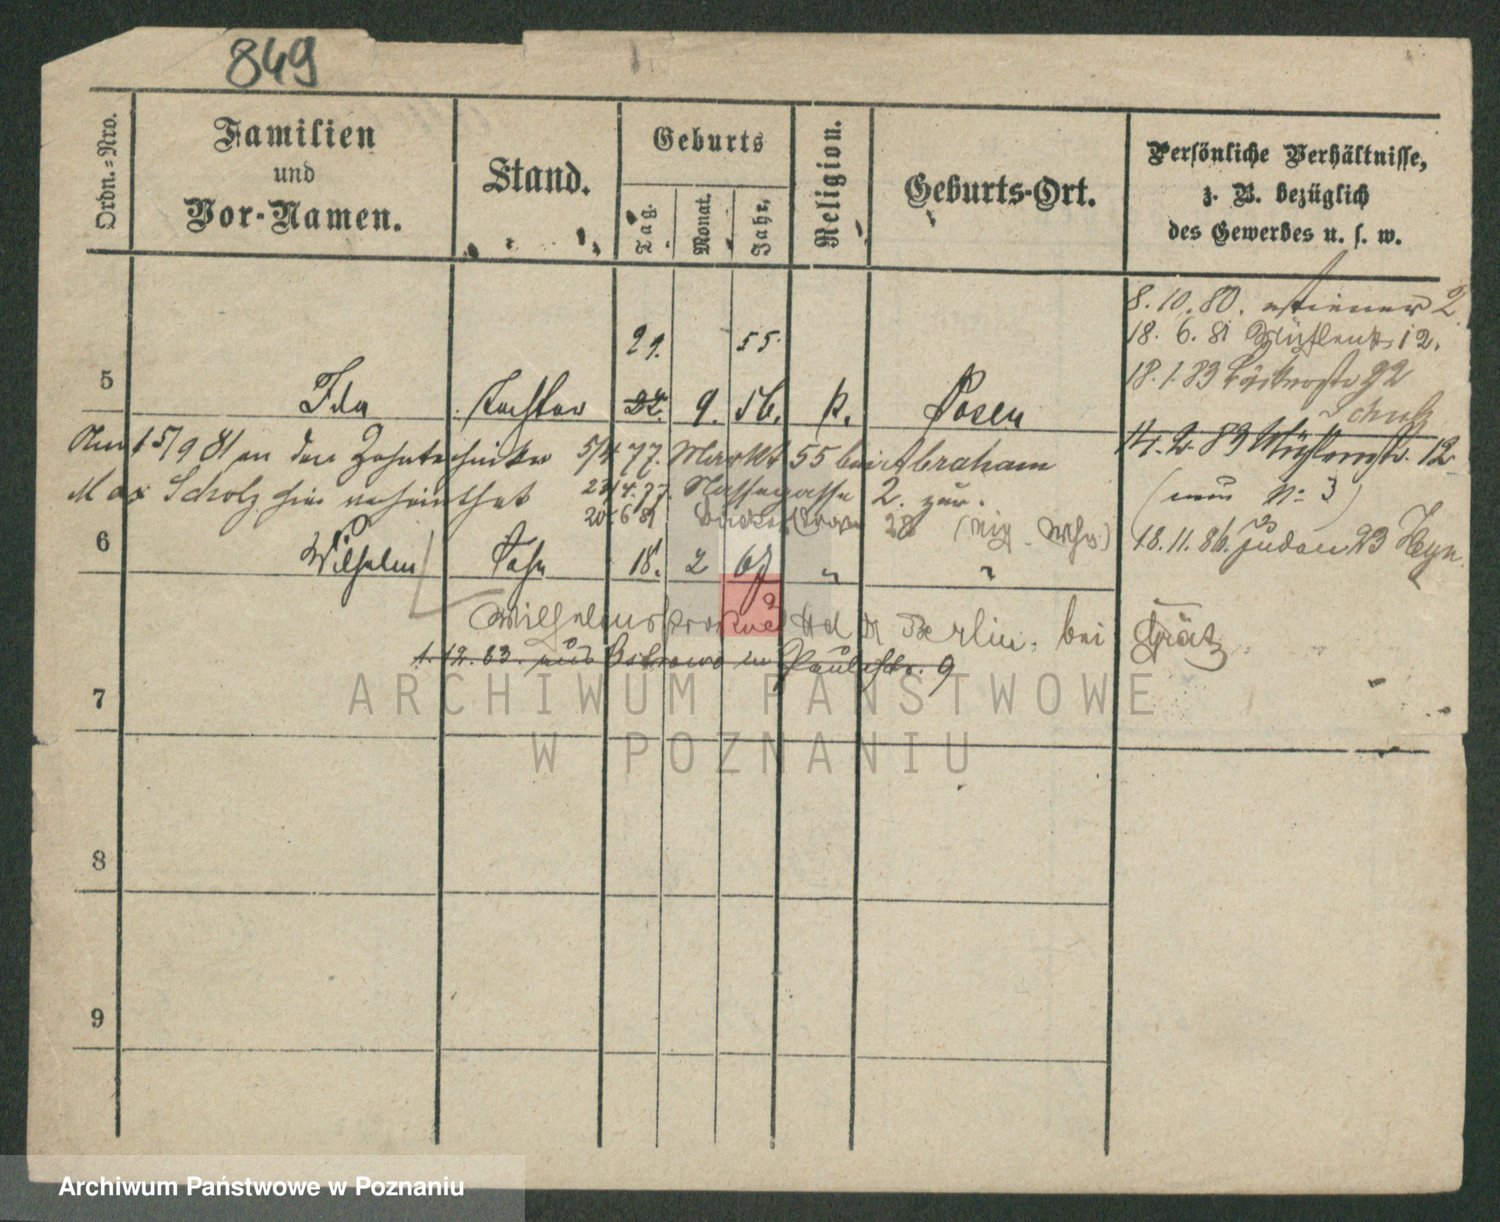 849
Ordn.=Nro.
Familien
und
Vor-Namen.
Stand.
Geburts
Tag.
Monat.
Jahr.
Religion.
Geburts-Ort.
Persönliche Verhältnisse,
z. B. bezüglich
des Gewerbes u. s. w.
8. 10. 80. 2
18. 6. 81 12.
29. 55
18. 1. 83 92
5 Ida Tochter 22. 9. 56. k. Posen
Scholz
14. 2. 83 12
Am 15/9 81 an den Zahntechniker 5/4 77. Markt 55 bei Abraham
Max Scholz hier verheirathet 23/4. 77. Nassegasse 2. zur.
(neu No 3)
20. 6 81 28
18. 11. 86. Juden 23 Heyn.
6 Wilhelm Sohn 18. 2 67 " "
Berlin. bei Grätz
1. 12. 83. aus Ostrowo in Paulistr. 9
7
ARCHIWUM PAŃSTWOWE
W POZNANIU
8
9
Archiwum Państwowe w Poznaniu